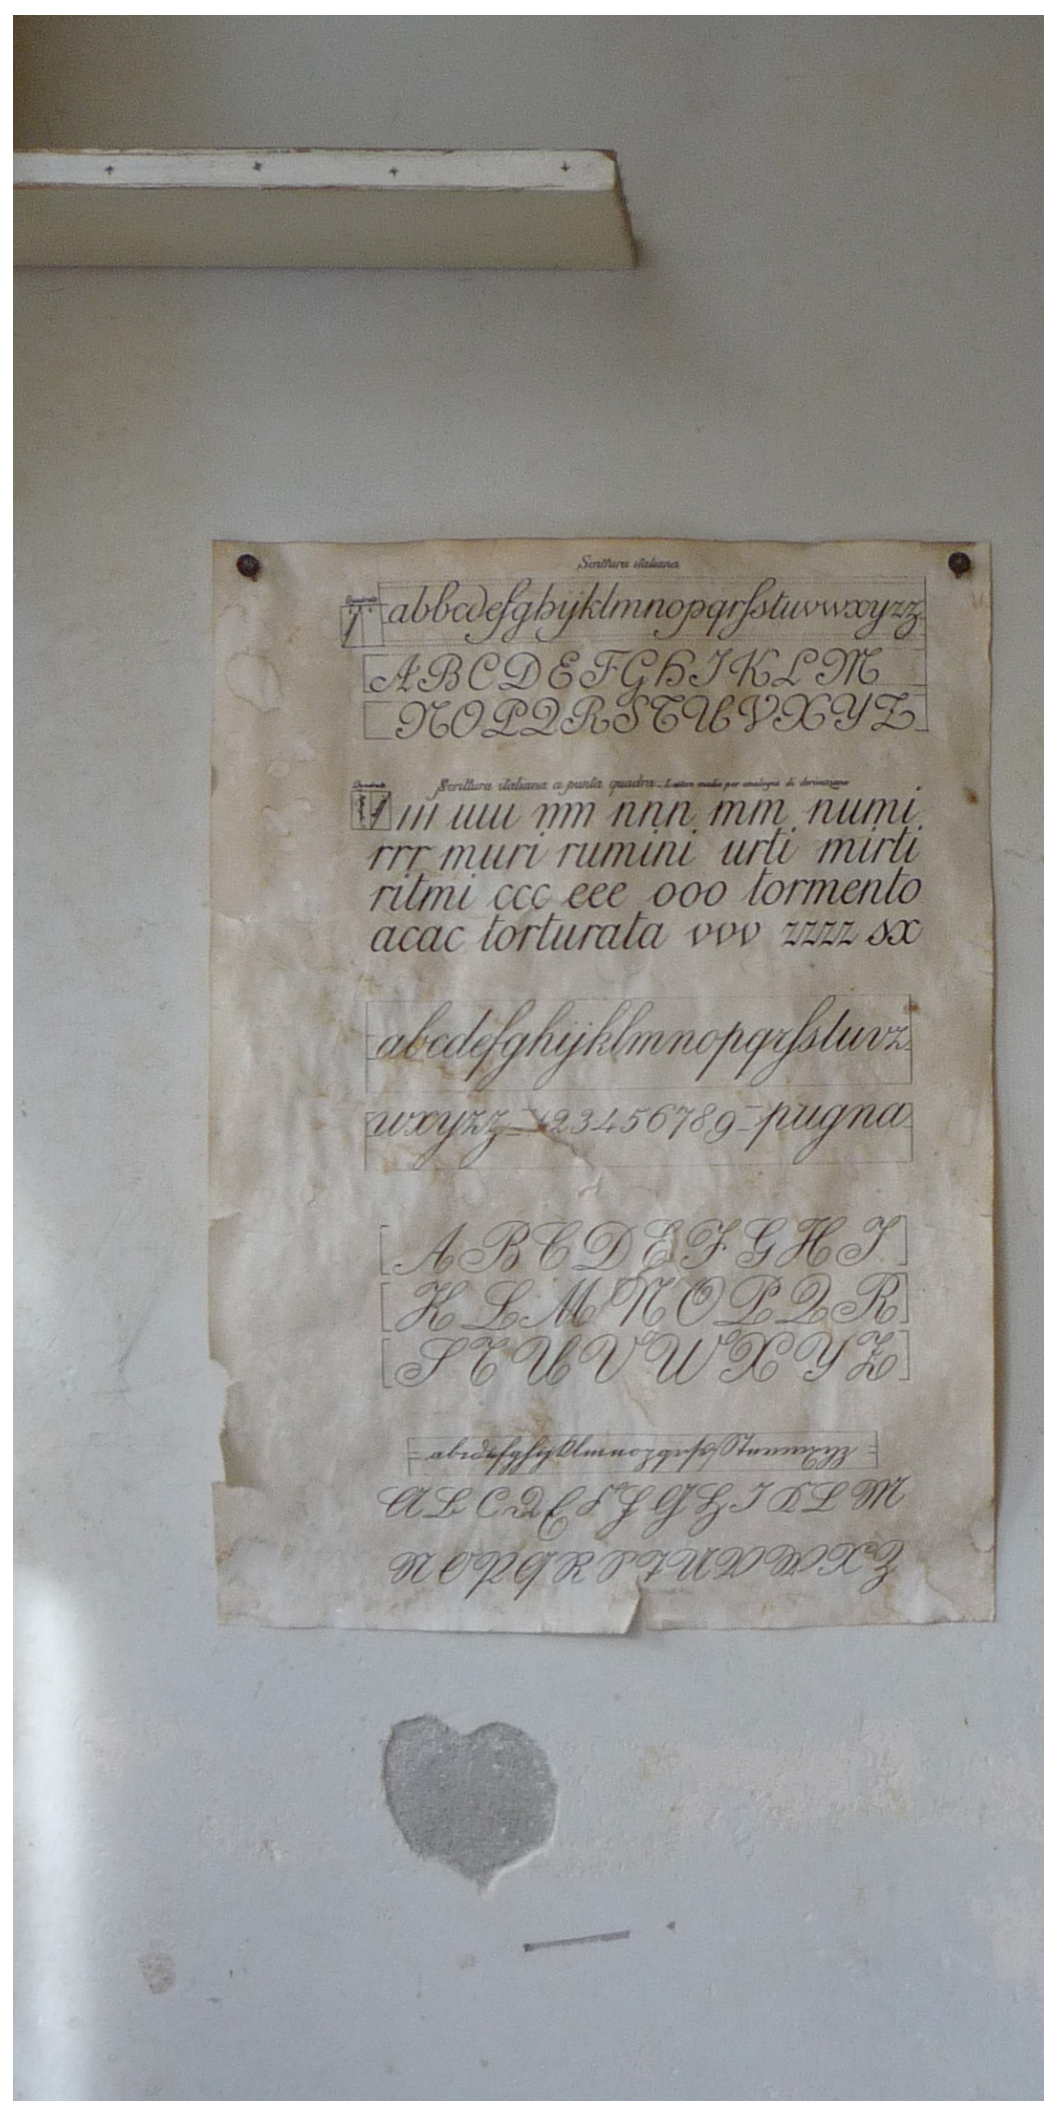 Scrittura italiana
Quadrato
abbcdefghijklmnopqrſstuvwxyzz
ABCDEFGHIKLM
NOPQRSTUVXYZ
Quadrato
Scrittura italiana a punta quadra - Lettere medie per analogia di derivazione
iii uuu mm nnn mm numi
rrr muri rumini urti mirti
ritmi ccc eee ooo tormento
acac torturata vvv zzzz sx
abcdefghijklmnopqrſstuvz
wxyzz=123456789=pugna
ABCDEFGHI
KLMNOPQR
STUVWXYZ
ALCDEFFGHIKLM